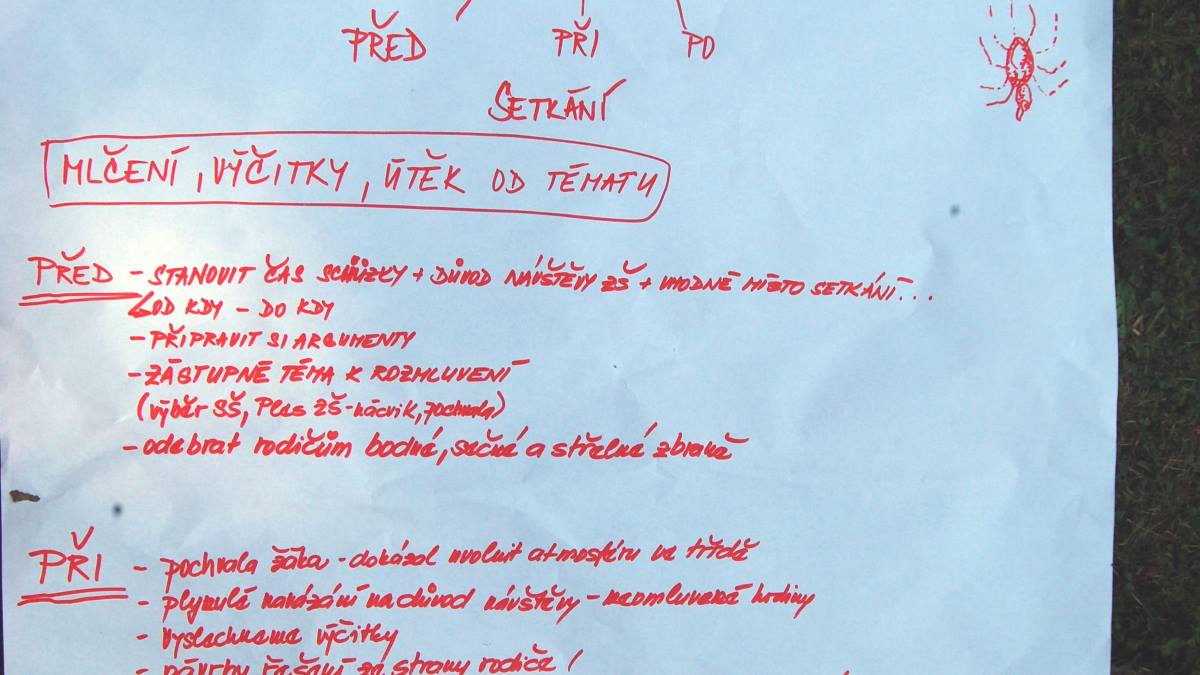 PŘED PŘI PO
SETKÁNÍ
MLČENÍ, VÝČITKY, ÚTĚK OD TÉMATU
PŘED - STANOVIT ČAS SCHŮZKY + DŮVOD NÁVŠTĚVY ZŠ + VHODNÉ MÍSTO SETKÁNÍ...
OD KDY - DO KDY
- PŘIPRAVIT SI ARGUMENTY
- ZÁSTUPNÉ TÉMA K ROZMLUVENÍ
(výběr SŠ, Ples ZŠ - nácvik, pochvala)
- odebrat rodičům bodné, sečné a střelné zbraně
PŘI - pochvala žáka - dokázal uvolnit atmosféru ve třídě
- plynulé navázání na důvod návštěvy - neomluvené hodiny
- vyslechneme výčitky
- návrhy řešení ze strany rodiče